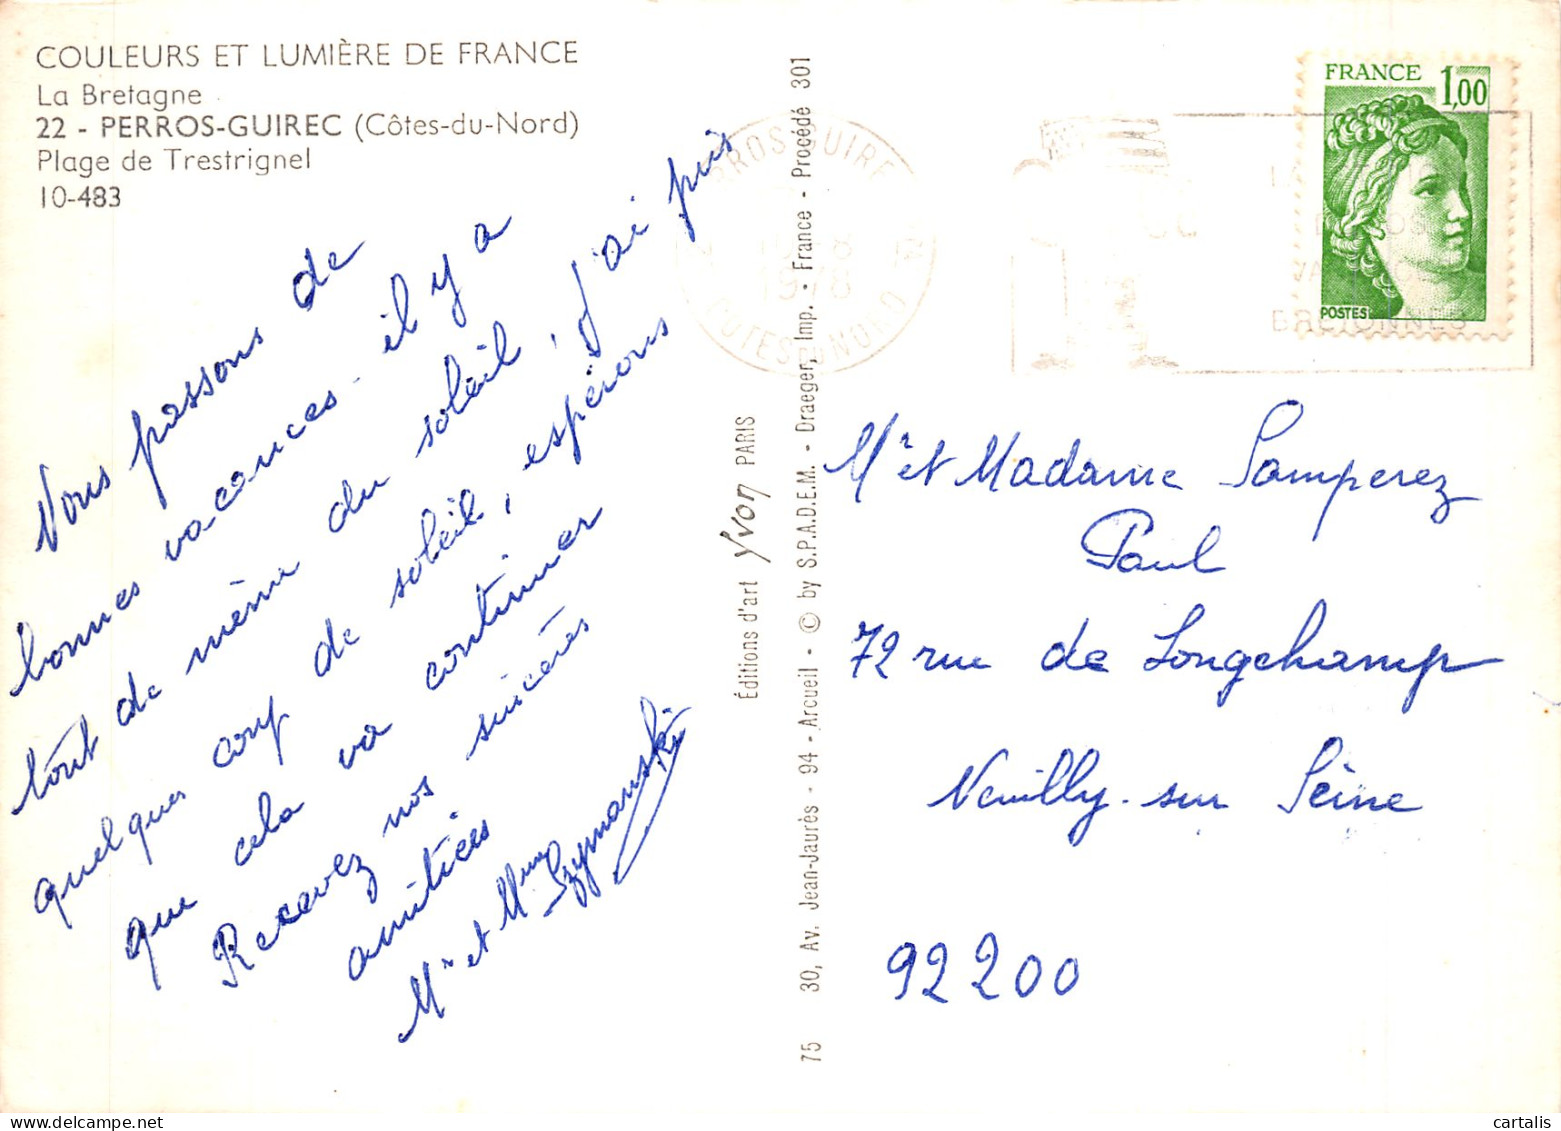 COULEURS ET LUMIÈRE DE FRANCE
La Bretagne
22 - PERROS-GUIREC (Côtes-du-Nord)
Plage de Trestrignel
10-483
Nous passons de
bonnes vacances - il y a
tout de même du soleil, j'ai pris
quelques coup de soleil, espérons
que cela va continuer
Recevez nos sincères
amitiés
Mr et Mme Szymanski
Éditions d'art Yvon PARIS
75 30, Av. Jean-Jaurès - 94 - Arcueil - © by S.P.A.D.E.M. - Draeger, Imp. - France - Procédé 301
1978
COTES DU NORD
BRETONNES
FRANCE 1,00
POSTES
Mr et Madame Samperez
Paul
72 rue de Longchamp
Neuilly-sur Seine
92200
cartalis